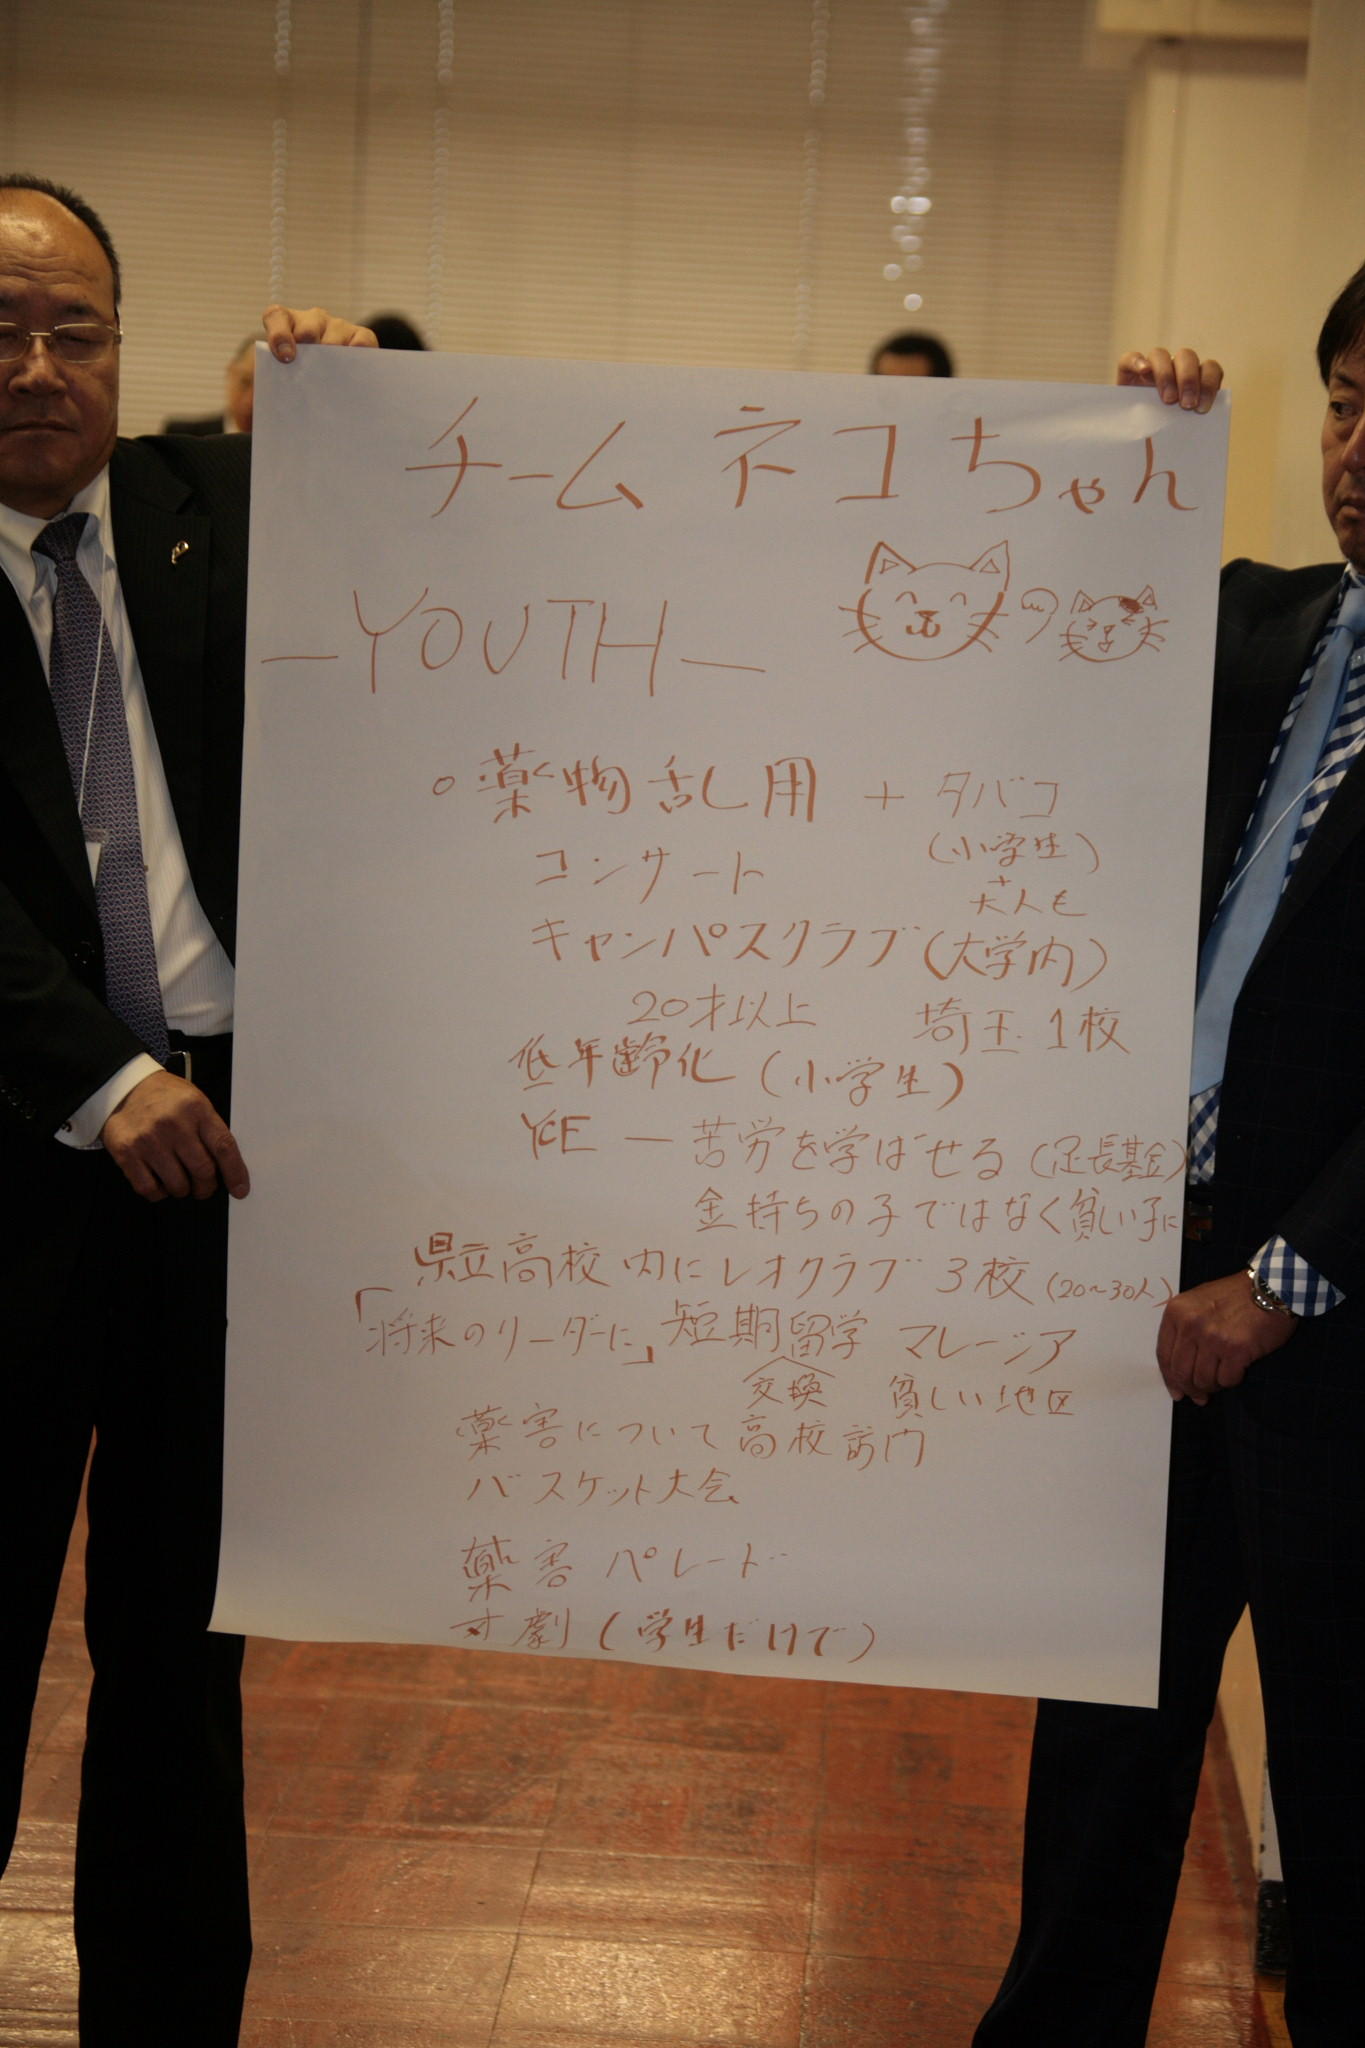 チーム ネコちゃん
―YOUTH―
○薬物乱用 + タバコ
(小学生)
コンサート
大人も
キャンパスクラブ(大学内)
20才以上 埼玉1校
低年齢化(小学生)
YCE ― 苦労を学ばせる(足長基金)
金持ちの子ではなく貧しい子に
県立高校内にレオクラブ 3校(20~30人)
「将来のリーダーに」短期留学 マレーシア
交換 貧しい地区
薬害について高校訪門
バスケット大会
薬害パレード
寸劇(学生だけで)